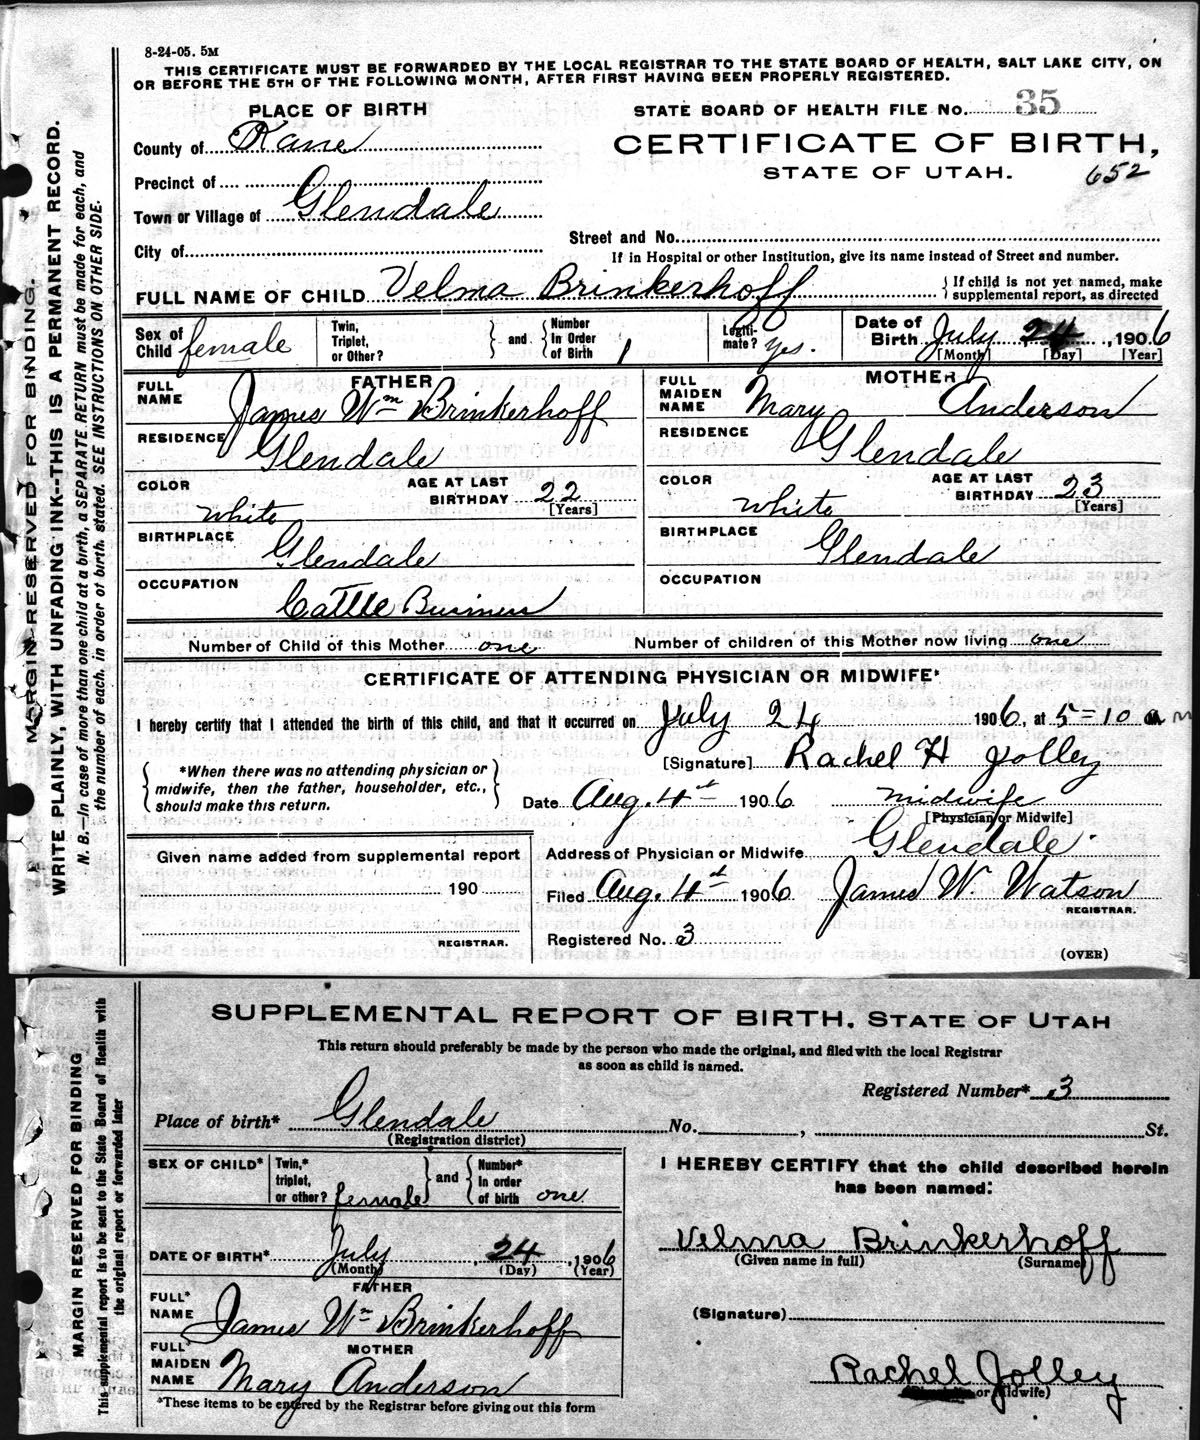 8-24-05. 5M
THIS CERTIFICATE MUST BE FORWARDED BY THE LOCAL REGISTRAR TO THE STATE BOARD OF HEALTH, SALT LAKE CITY, ON
OR BEFORE THE 5TH OF THE FOLLOWING MONTH, AFTER FIRST HAVING BEEN PROPERLY REGISTERED.
MARGIN RESERVED FOR BINDING.
WRITE PLAINLY, WITH UNFADING INK--THIS IS A PERMANENT RECORD.
N. B.—In case of more than one child at a birth, a SEPARATE RETURN must be made for each, and
the number of each, in order of birth, stated. SEE INSTRUCTIONS ON OTHER SIDE.
PLACE OF BIRTH
STATE BOARD OF HEALTH FILE No. 35
County of Kane
CERTIFICATE OF BIRTH,
STATE OF UTAH.
652
Precinct of
Town or Village of Glendale
City of
Street and No.
If in Hospital or other Institution, give its name instead of Street and number.
FULL NAME OF CHILD Velma Brinkerhoff { If child is not yet named, make
supplemental report, as directed
Sex of Child female
Twin, Triplet, or Other? } and { Number In Order of Birth 1
Legiti-mate? yes.
Date of Birth July 24, 1906
[Month] [Day] [Year]
FATHER
FULL NAME James Wm Brinkerhoff
RESIDENCE Glendale
COLOR white AGE AT LAST BIRTHDAY 22 [Years]
BIRTHPLACE Glendale
OCCUPATION Cattle Business
MOTHER
FULL MAIDEN NAME Mary Anderson
RESIDENCE Glendale
COLOR white AGE AT LAST BIRTHDAY 23 [Years]
BIRTHPLACE Glendale
OCCUPATION
Number of Child of this Mother one Number of children of this Mother now living one
CERTIFICATE OF ATTENDING PHYSICIAN OR MIDWIFE*
I hereby certify that I attended the birth of this child, and that it occurred on July 24 1906, at 5=10 a m
[Signature] Rachel H Jolley
{ *When there was no attending physician or
midwife, then the father, householder, etc.,
should make this return. }
Date Aug. 4th 1906 midwife
[Physician or Midwife]
Given name added from supplemental report
190
REGISTRAR.
Address of Physician or Midwife Glendale
Filed Aug. 4th 1906 James W. Watson
REGISTRAR.
Registered No. 3
(OVER)
MARGIN RESERVED FOR BINDING
This supplemental report is to be sent to the State Board of Health with
the original report or forwarded later
SUPPLEMENTAL REPORT OF BIRTH. STATE OF UTAH
This return should preferably be made by the person who made the original, and filed with the local Registrar
as soon as child is named.
Registered Number* 3
Place of birth* Glendale No. , St.
(Registration district)
SEX OF CHILD* Twin,* triplet, or other? female } and { Number* In order of birth one
DATE OF BIRTH* July 24, 1906
(Month) (Day) (Year)
FATHER
FULL* NAME James Wm Brinkerhoff
MOTHER
FULL* MAIDEN NAME Mary Anderson
*These items to be entered by the Registrar before giving out this form
I HEREBY CERTIFY that the child described herein
has been named:
Velma Brinkerhoff
(Given name in full) (Surname)
(Signature)
Rachel Jolley
or Midwife)